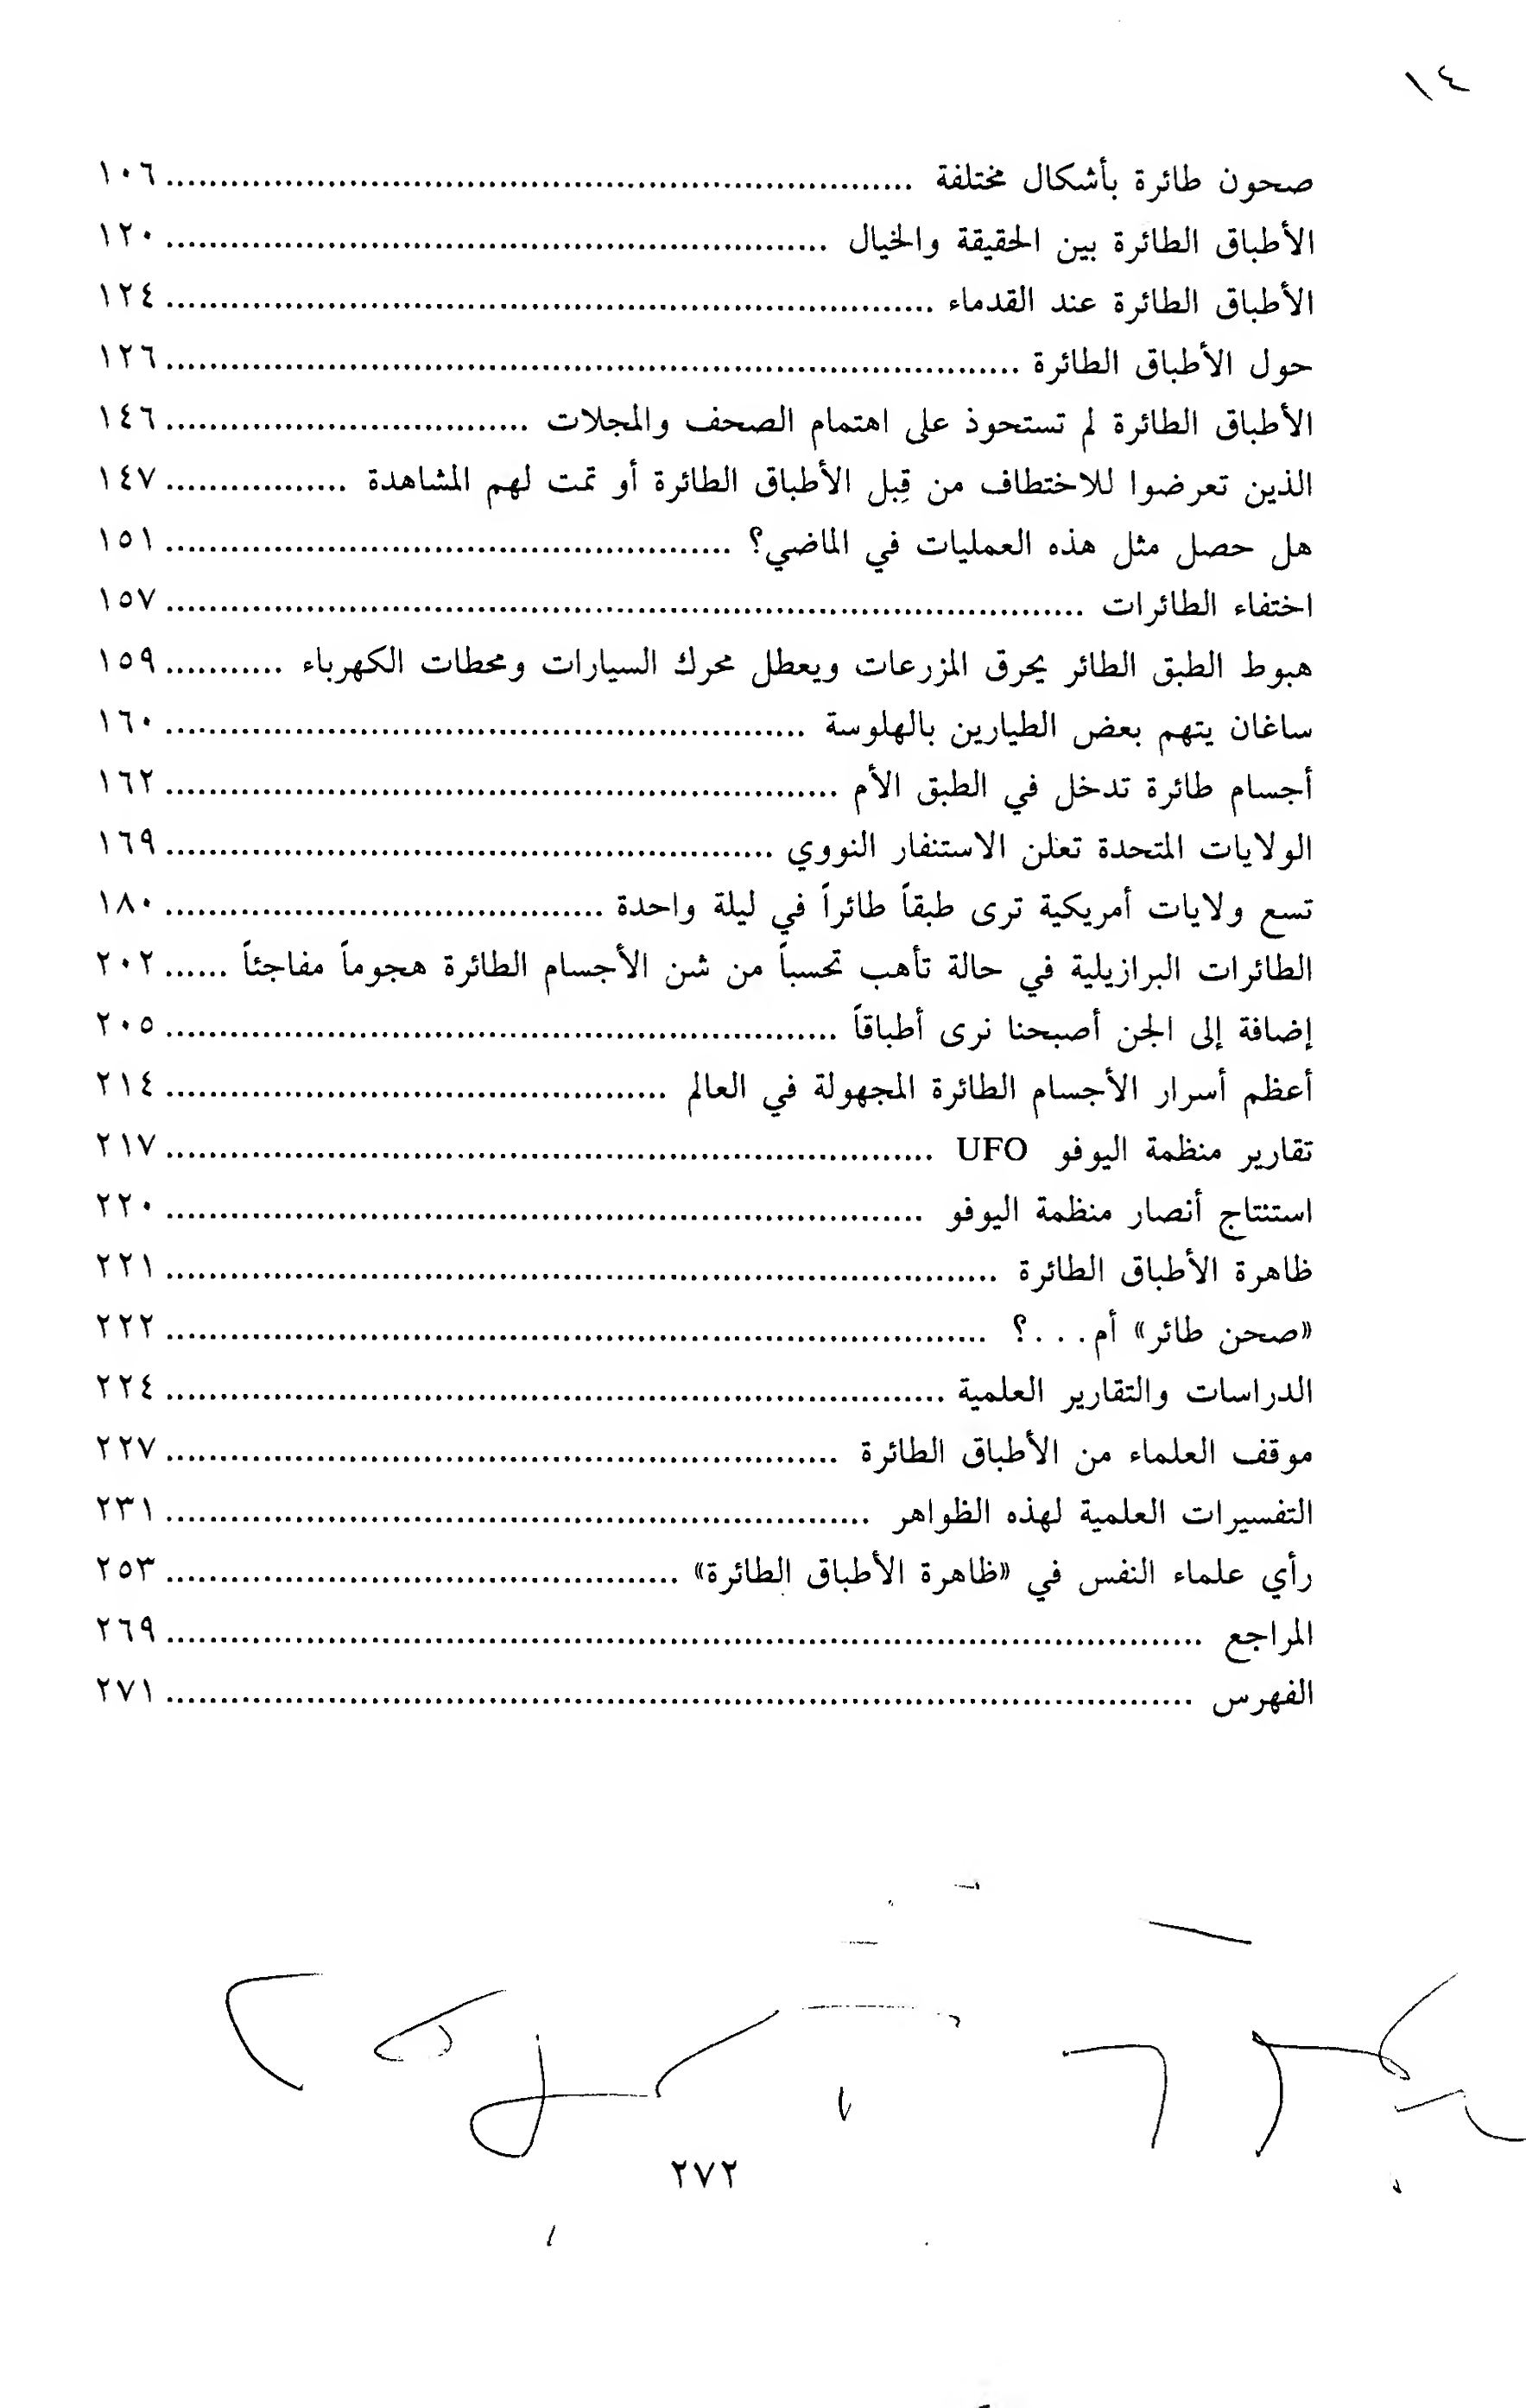 ١٤
صحون طائرة بأشكال مختلفة ........ ١٠٦
الأطباق الطائرة بين الحقيقة والخيال ........ ١٢٠
الأطباق الطائرة عند القدماء ........ ١٢٤
حول الأطباق الطائرة ........ ١٢٦
الأطباق الطائرة لم تستحوذ على اهتمام الصحف والمجلات ........ ١٤٦
الذين تعرضوا للاختطاف من قِبل الأطباق الطائرة أو تمت لهم المشاهدة ........ ١٤٧
هل حصل مثل هذه العمليات في الماضي؟ ........ ١٥١
اختفاء الطائرات ........ ١٥٧
هبوط الطبق الطائر يحرق المزرعات ويعطل محرك السيارات ومحطات الكهرباء ........ ١٥٩
ساغان يتهم بعض الطيارين بالهلوسة ........ ١٦٠
أجسام طائرة تدخل في الطبق الأم ........ ١٦٢
الولايات المتحدة تعلن الاستنفار النووي ........ ١٦٩
تسع ولايات أمريكية ترى طبقاً طائراً في ليلة واحدة ........ ١٨٠
الطائرات البرازيلية في حالة تأهب تحسباً من شن الأجسام الطائرة هجوماً مفاجئاً ...... ٢٠٢
إضافة إلى الجن أصبحنا نرى أطباقاً ........ ٢٠٥
أعظم أسرار الأجسام الطائرة المجهولة في العالم ........ ٢١٤
تقارير منظمة اليوفو UFO ........ ٢١٧
استنتاج أنصار منظمة اليوفو ........ ٢٢٠
ظاهرة الأطباق الطائرة ........ ٢٢١
«صحن طائر» أم...؟ ........ ٢٢٢
الدراسات والتقارير العلمية ........ ٢٢٤
موقف العلماء من الأطباق الطائرة ........ ٢٢٧
التفسيرات العلمية لهذه الظواهر ........ ٢٣١
رأي علماء النفس في «ظاهرة الأطباق الطائرة» ........ ٢٥٣
المراجع ........ ٢٦٩
الفهرس ........ ٢٧١
٢٧٢